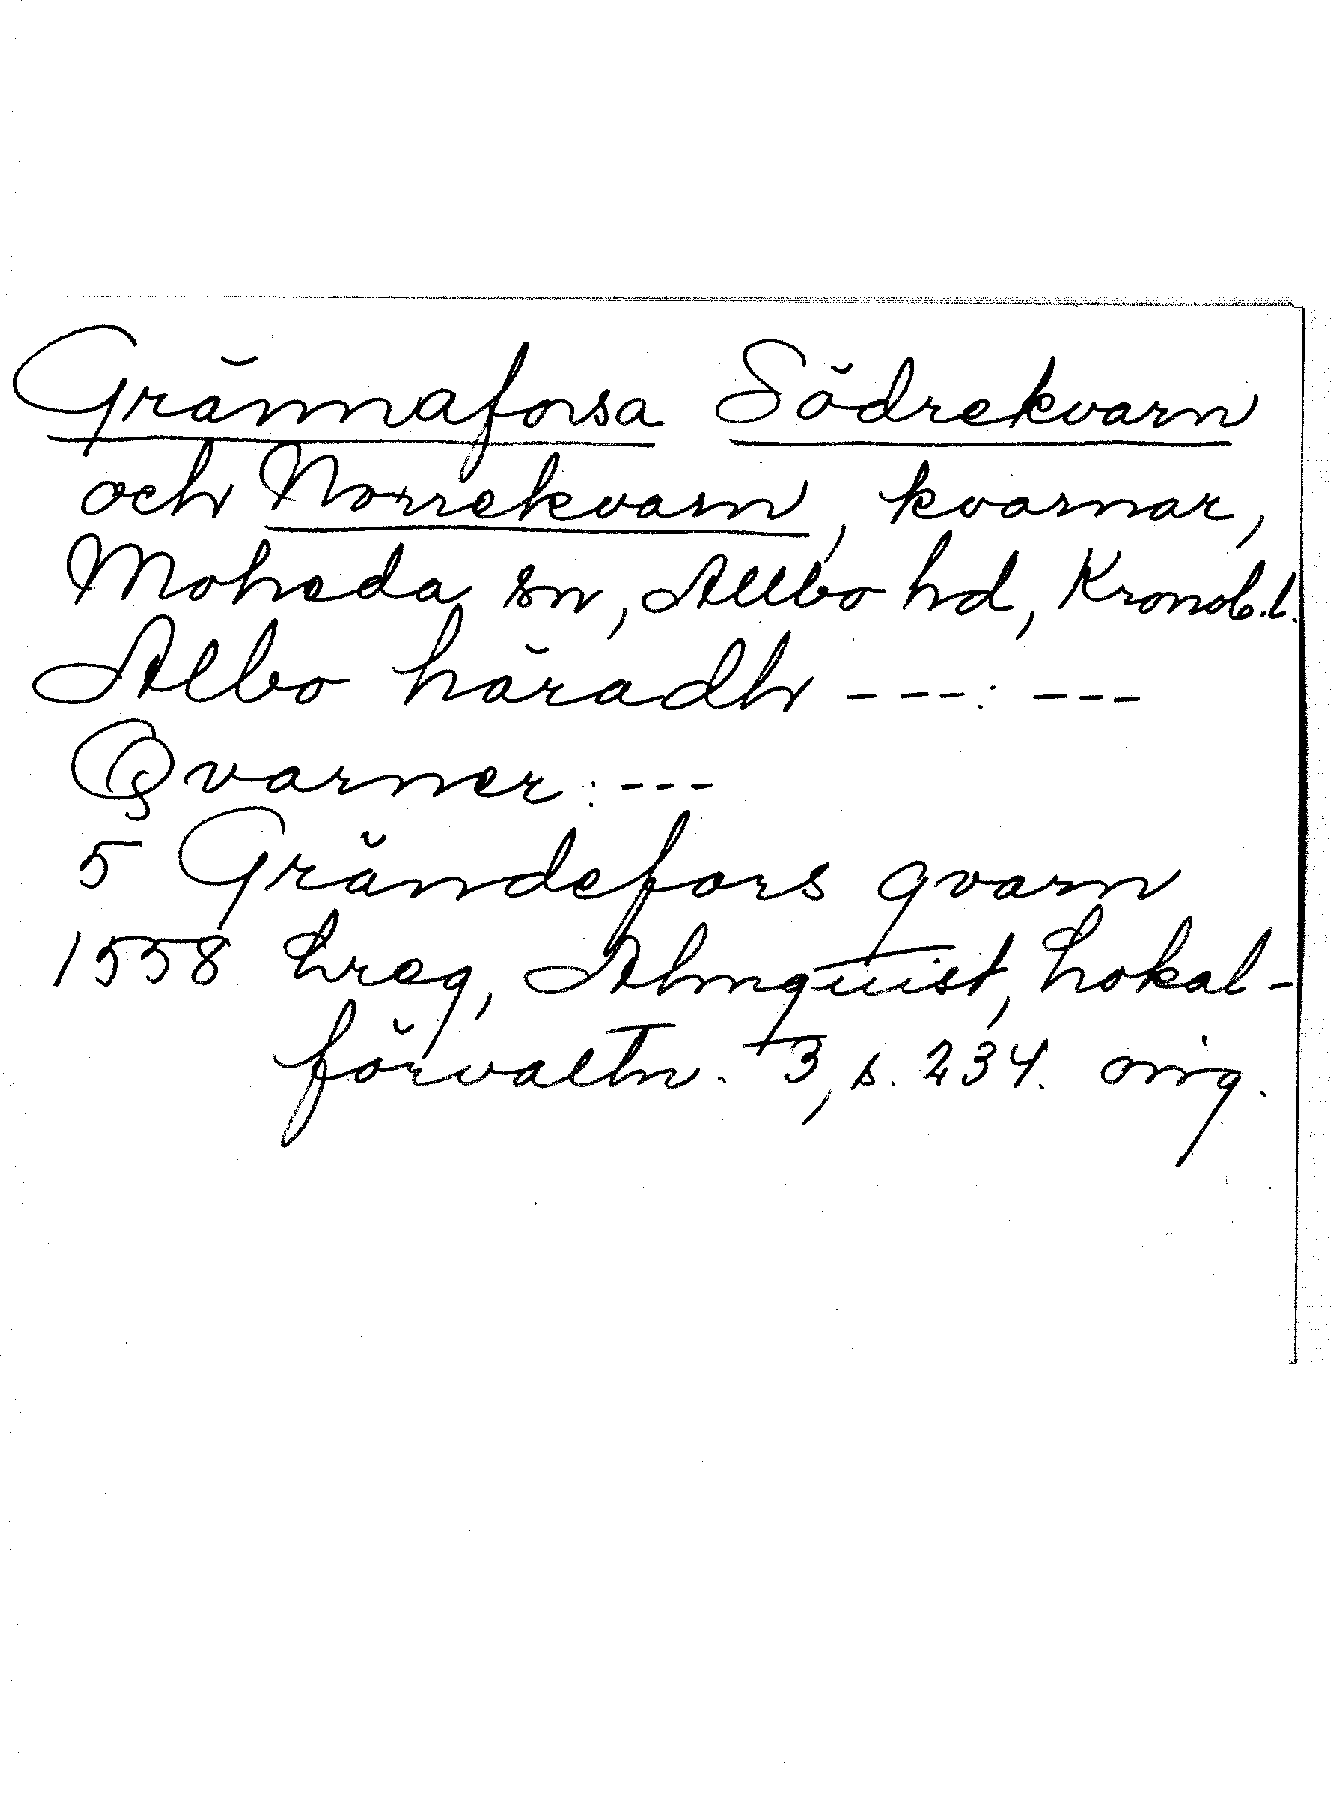 Grännaforsa Södrekvarn
och Norrekvarn, kvarnar,
Moheda sn, Allbo hd, Kronob. l.
Albo häradh ---: ---
Qvarner: ---
5 Grändefors qvarn
1558 Lreg, Almquist, Lokal-
förvaltn. 3, s. 234. orig.